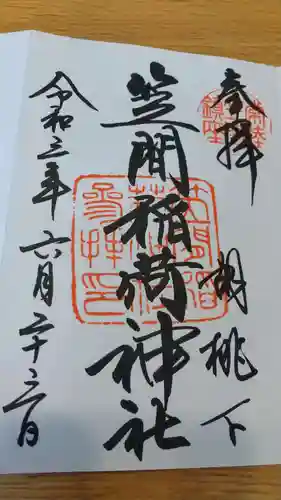 奉拝
胡桃下
笠間稲荷神社
令和三年
六月二十三日